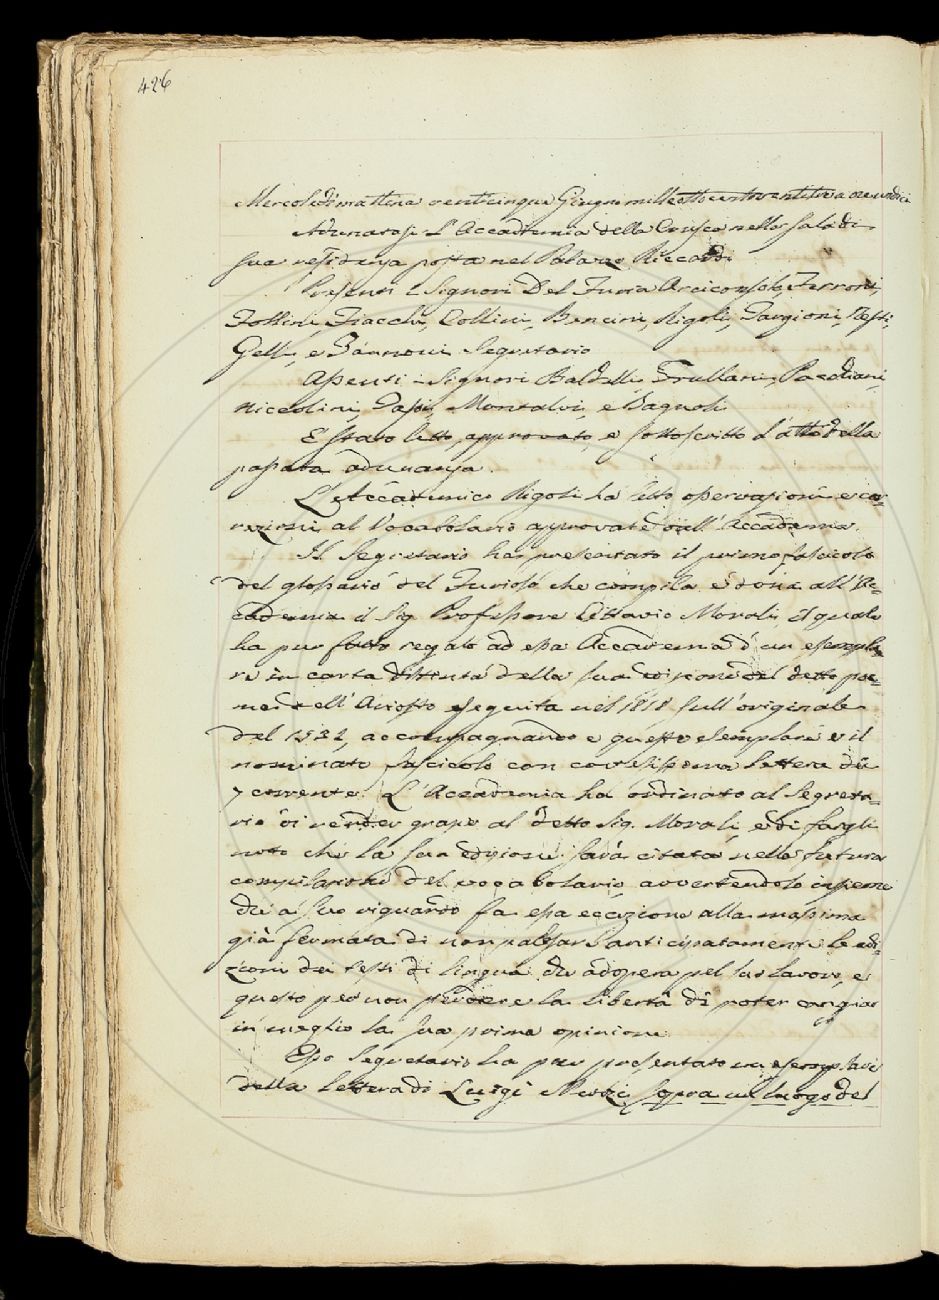 426
Mercoledì mattina venticinque Giugno milleottocentoventitre a ore undici
Adunatasi l'Accademia della Crusca nella sala di
sua residenza posta nel Palazzo Riccardi
Presenti i Signori Del Furia Arciconsolo, Ferroni,
Follini, Fiacchi, Collini, Bencini, Rigoli, Targioni, Nesti,
Gelli, e Zannoni Segretario
Assenti i Signori Baldelli, Frullani, Pacchiani,
Niccolini, Tassi, Montalvi, e Bagnoli
È stato letto, approvato, e sottoscritto l'atto della
passata adunanza.
L'Accademico Rigoli ha letto osservazioni e cor-
rezioni al Vocabolario approvate dall'Accademia.
Il Segretario ha presentato il primo fascicolo
del glossario del Furioso che compila e dona all'Ac-
cademia il Sig. Professore Ottavio Morali, il quale
ha pur fatto regalo ad essa Accademia d'un esempla-
re in carta distinta della sua edizione del detto poe-
ma dell'Ariosto eseguita nel 1818 sull'originale
del 1532, accompagnando e questo esemplare e il
nominato fascicolo con cortesissima lettera de'
7 corrente. L'Accademia ha ordinato al Segreta-
rio di render grazie al detto Sig. Morali, e di fargli
noto che la sua edizione sarà citata nella futura
compilazione del vocabolario, avvertendolo insieme
che a suo riguardo fa essa eccezione alla massima
già fermata di non palesar anticipatamente le edi-
zioni dei testi di lingua che adopera pel suo lavoro, e
questo per non perdere la libertà di poter cangiar
in meglio la sua prima opinione.
Esso Segretario ha pur presentato un esemplare
della lettera di Luigi Muzzi sopra un luogo del